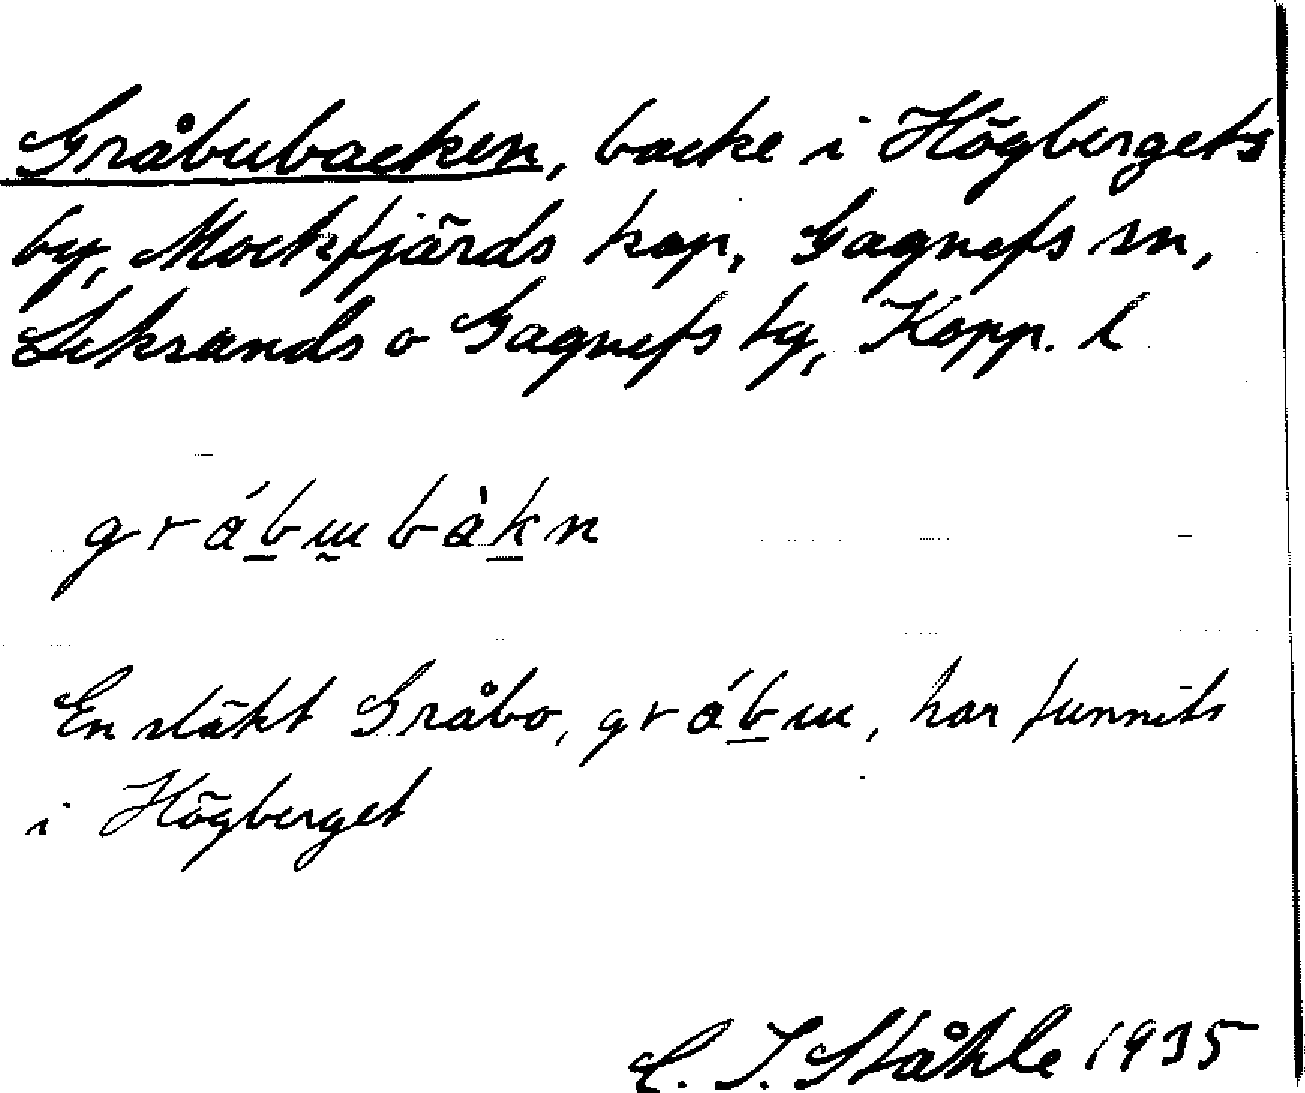 Gråbubacken, backe i Högbergets
by, Mockfjärds kap, Gagnefs sn,
Leksands o Gagnefs tg, Kopp. l
grábɯbàkn
En släkt Gråbo, grábɯ, har funnits
i Högberget
C. I. Ståhle 1935